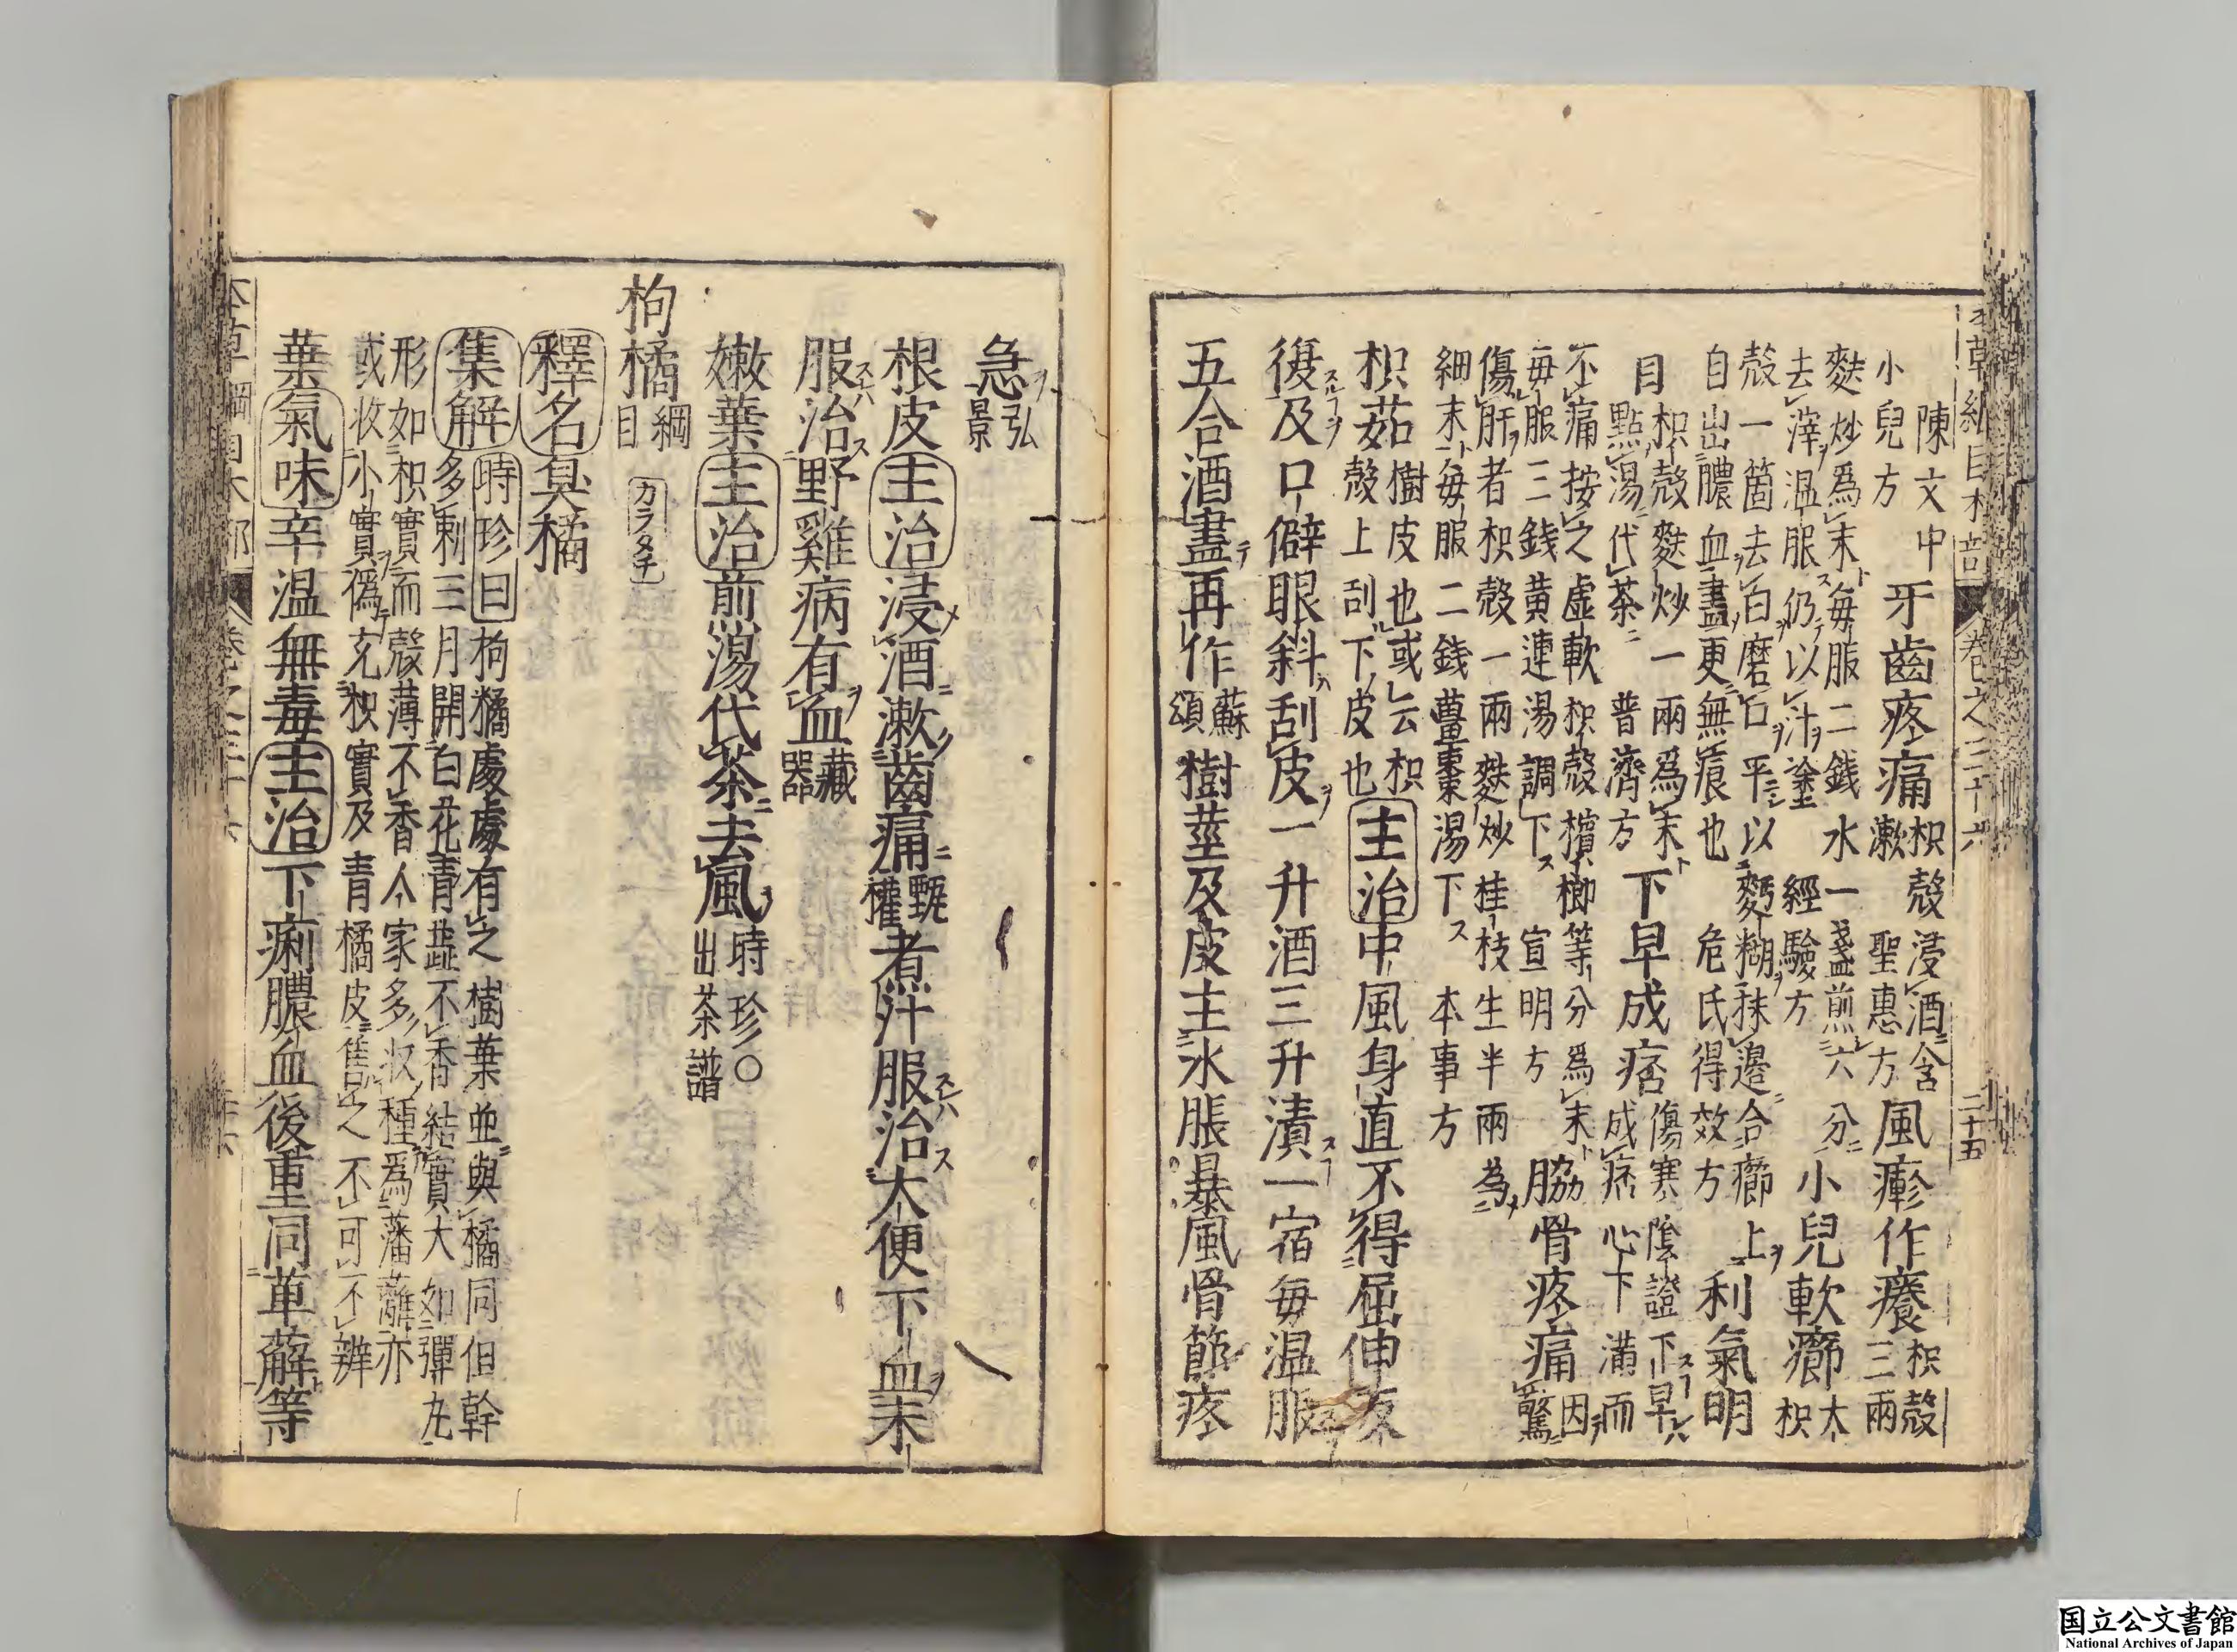 本草綱目木部 卷之三十六 二十五
陳文中小兒方 牙齒疼痛 枳殼浸酒含漱 聖惠方 風瘮作癢 枳殼三兩
麩炒爲末每服二錢水一盞煎六分去滓温服仍以汁塗 經驗方 小兒軟癤 大枳
殼一箇去白磨口平以麪糊抹邊合癤上自出膿血盡更無痕也 危氏得效方 利氣明
目 枳殼麩炒一兩爲末點湯代茶 普濟方 下早成痞 傷寒陰證下早成痞心下滿而
不痛按之虛軟枳殼檳榔等分爲末每服三錢黄連湯調下 宣明方 脇骨疼痛 因驚
傷肝者枳殼一兩麩炒桂枝生半兩爲細末每服二錢薑棗湯下 本事方
枳茹 樹皮也或云枳殼上刮下皮也 主治 中風身直不得屈伸反
復及口僻眼斜刮皮一升酒三升漬一宿每温服
五合酒盡再作 蘇頌 樹莖及皮主水脹暴風骨節疼
急 弘景
根皮 主治 浸酒漱齒痛 甄權 煮汁服治大便下血末
服治野雞病有血 藏器
嫩葉 主治 煎湯代茶去風 時珍○出茶譜
枸橘 綱目 カラタチ
釋名 臭橘
集解 時珍曰枸橘處處有之樹葉並與橘同但幹多刺三月開白花青蕋不香結實大如彈丸
形如枳實而殼薄不香人家多收種爲藩籬亦或收小實僞充枳實及青橘皮售之不可不辨
葉 氣味 辛温無毒 主治 下痢膿血後重同萆薢等
本草綱目木部 卷之三十六
国立公文書館
National Archives of Japan